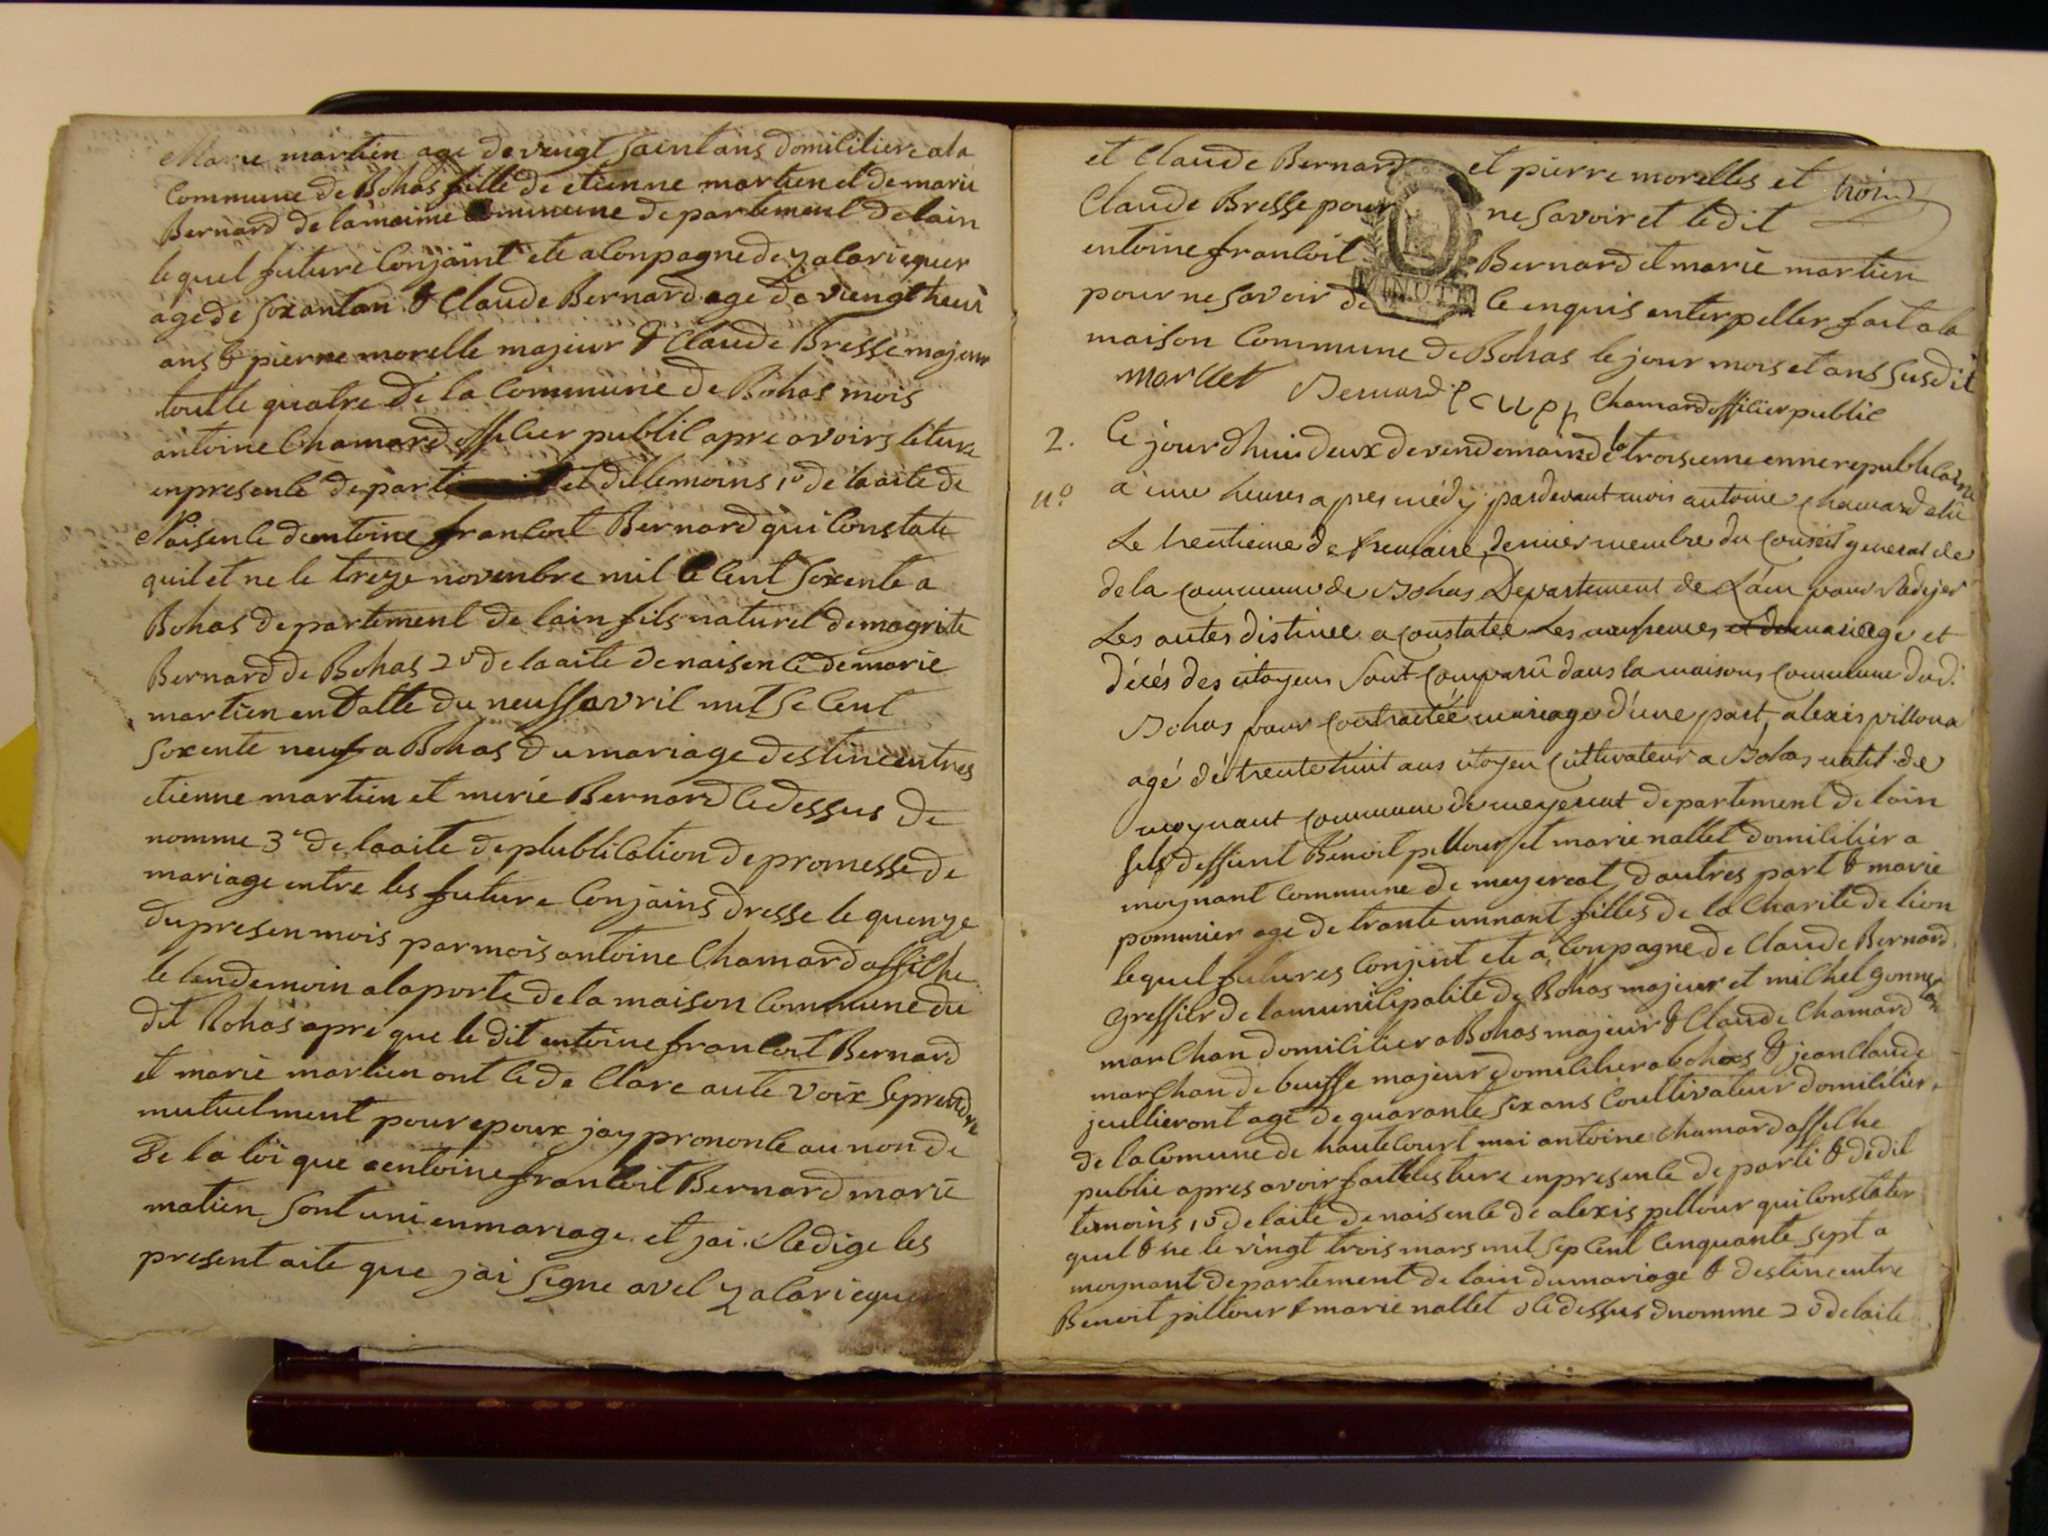 Marie martien age de vengt saint ans domiciliere a la
Commune de Bohas fille de etienne martien et de marie
Bernard de la maime Commune departement de lain
le quel future Conjoint ete aConpagne de
age de soxantan & Claude Bernard age de viengt heui
ans & pierre morelle majeur & Claude Bresse majeur
toutte quatre de la Commune de Bohas mois
antoine Chamard officier public apre avoir lecture
en presence de parti et de temoins 1º de la aite de
Naisence dentoine francoit Bernard qui Constate
quil et ne le treze novenbre mil Cent soxente a
Bohas departement de lain fils naturel de magrite
Bernard de Bohas 2º de la aite de naisence de marie
martien en datte du neuff avril mil se Cent
soxente neuf a Bohas du mariage destinc entres
etienne martien et merie Bernard Cedessus de
nomme 3º de la aite de plublication de promesse de
mariage entre les future Conjains dresse le quenze
du presen mois par mois antoine Chamard affiche
le lendemoin a la porte de la maison Commune du
dit Bohas apre que le dit entoine francoit Bernard
et marie martien ont Cede Clare aute voix se prendre
mutuelment pour epoux jay prononce au non de
de la loi que aentoine francoit Bernard marie
matien sont uni en mariage et jai Redige les
present aite que jai segne avec
et Claude Bernard et pierre morelles et
Claude Bresse pour ne savoir et le dit
entoine francoit Bernard et marie martien
MINUTE
pour ne savoir de Ce enquis enterpeller fait a la
maison Commune de Bohas le jour mois et ans susdit
morllet Bernard Chamard officier public
2. Ce jour dhui deux de vendemaire de la troisieme enne republicaine
nº a une heures apres médij pardevant mois antoine Chamard elu
Le trentieme de frimaire dernier membre du Conseil general de
de la commune de Bohas Departement de Lain pour Rediger
Les actes distinee a constatee Les naissences et de mariage et
décés des citoyens sont comparû dans la maison commune dud.
Bohas pour contractée mariage d'une part, alexis
agé de trente huit ans citoyen Cultivateur a Bohas natif de
moynant commune de meyeriat departement de lain
fils deffunt Benoit pillour et marie nallet domicilier a
moynant Commune de meyereat dautres part & marie
pommier age de trante unnant filles de la Charité de lion
lequel futures Conjint ete aConpagne de Claude Bernard
greffier de la municipalite de Bohas majeur et michel
marChan domicilier a Bohas majeur & Claude Chamard
marChan de buffe majeur domicilier a bohas & jean Claude
juillieront age de quarante six ans Coultivateur domicilier
de la Comune de hautecourt moi antoine Chamard affiche
public apres avoir fait lecture en presence de parti & dedit
temoins 1º de laite de naisence de alexis pillour qui Constater
quil & ne le vingt trois mars mil sep Cent Cenquante sept a
moynant departement de lain du mariage & destinc entre
Benoit pillour & marie nallet Cidessus dnomme 2º de laite